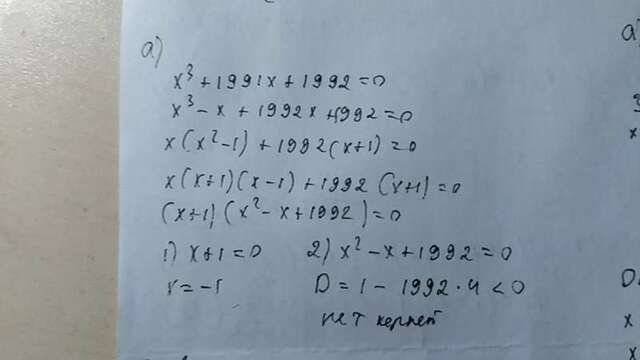 а)
x³ + 1991x + 1992 = 0
x³ - x + 1992x + 1992 = 0
x(x² - 1) + 1992(x+1) = 0
x(x+1)(x-1) + 1992(x+1) = 0
(x+1)(x² - x + 1992) = 0
1) x+1 = 0 2) x² - x + 1992 = 0
x = -1 D = 1 - 1992 · 4 < 0
нет корней
а)
x
D
x
x